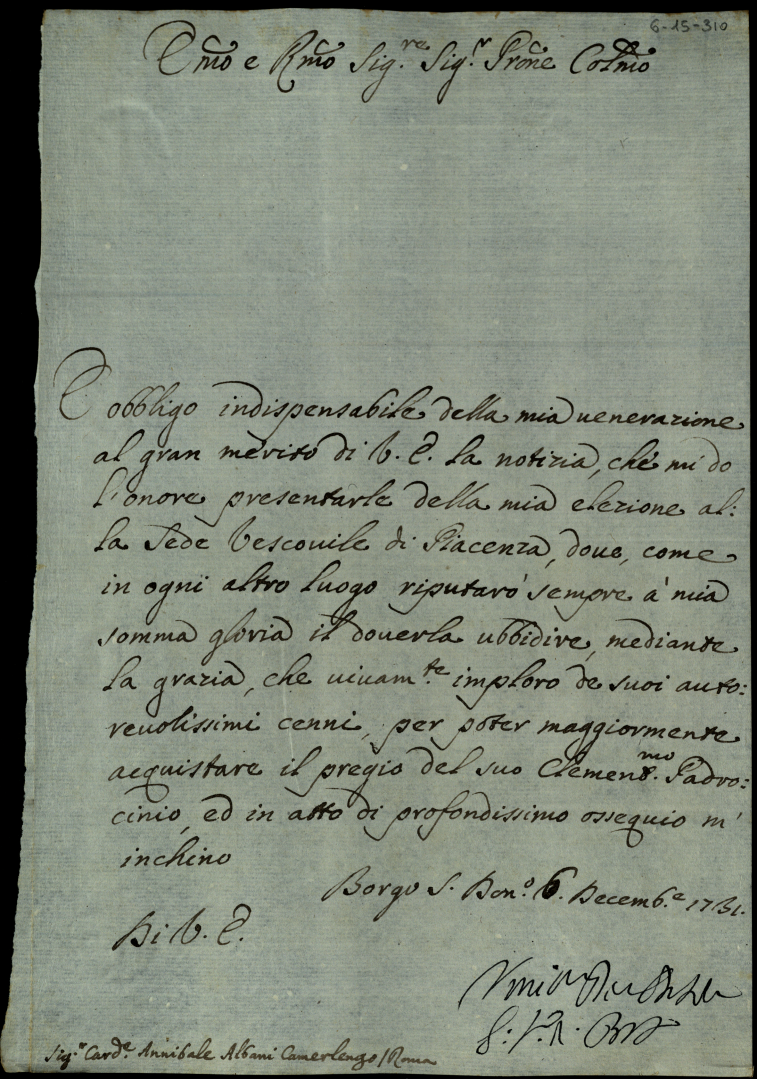 6-15-310
Emo e Rmo Sig.re Sig.r Prone Colmo
È obbligo indispensabile della mia uenerazione
al gran merito di V. E. la notizia, che mi do
l'onore presentarle della mia elezione al:
la Sede Vescouile di Piacenza, doue, come
in ogni altro luogo riputarò sempre à mia
somma gloria il douerla ubbidire, mediante
la grazia, che uiuam.te imploro de suoi auto:
reuolissimi cenni, per poter maggiormente
acquistare il pregio del suo Clement.mo Padro:
cinio, ed in atto di profondissimo ossequio m'
inchino
Borgo S. Don.o 6. Decemb.e 1731.
Di V. E.
Sig.r Card.e Annibale Albani Camerlengo / Roma